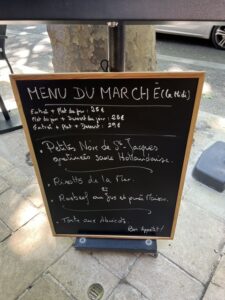 MENU DU MARCHÉ (Le Midi)
Entrée + Plat du jour : 25€
Plat du jour + Dessert du jour : 25€
Entrée + Plat + Dessert : 29€
Petites Noix de St-Jacques
gratinées sauce Hollandaise.
Risotto de la Mer.
ou
Roastbeef au jus et purée Maison.
Tarte aux Abricots.
Bon Appétit !